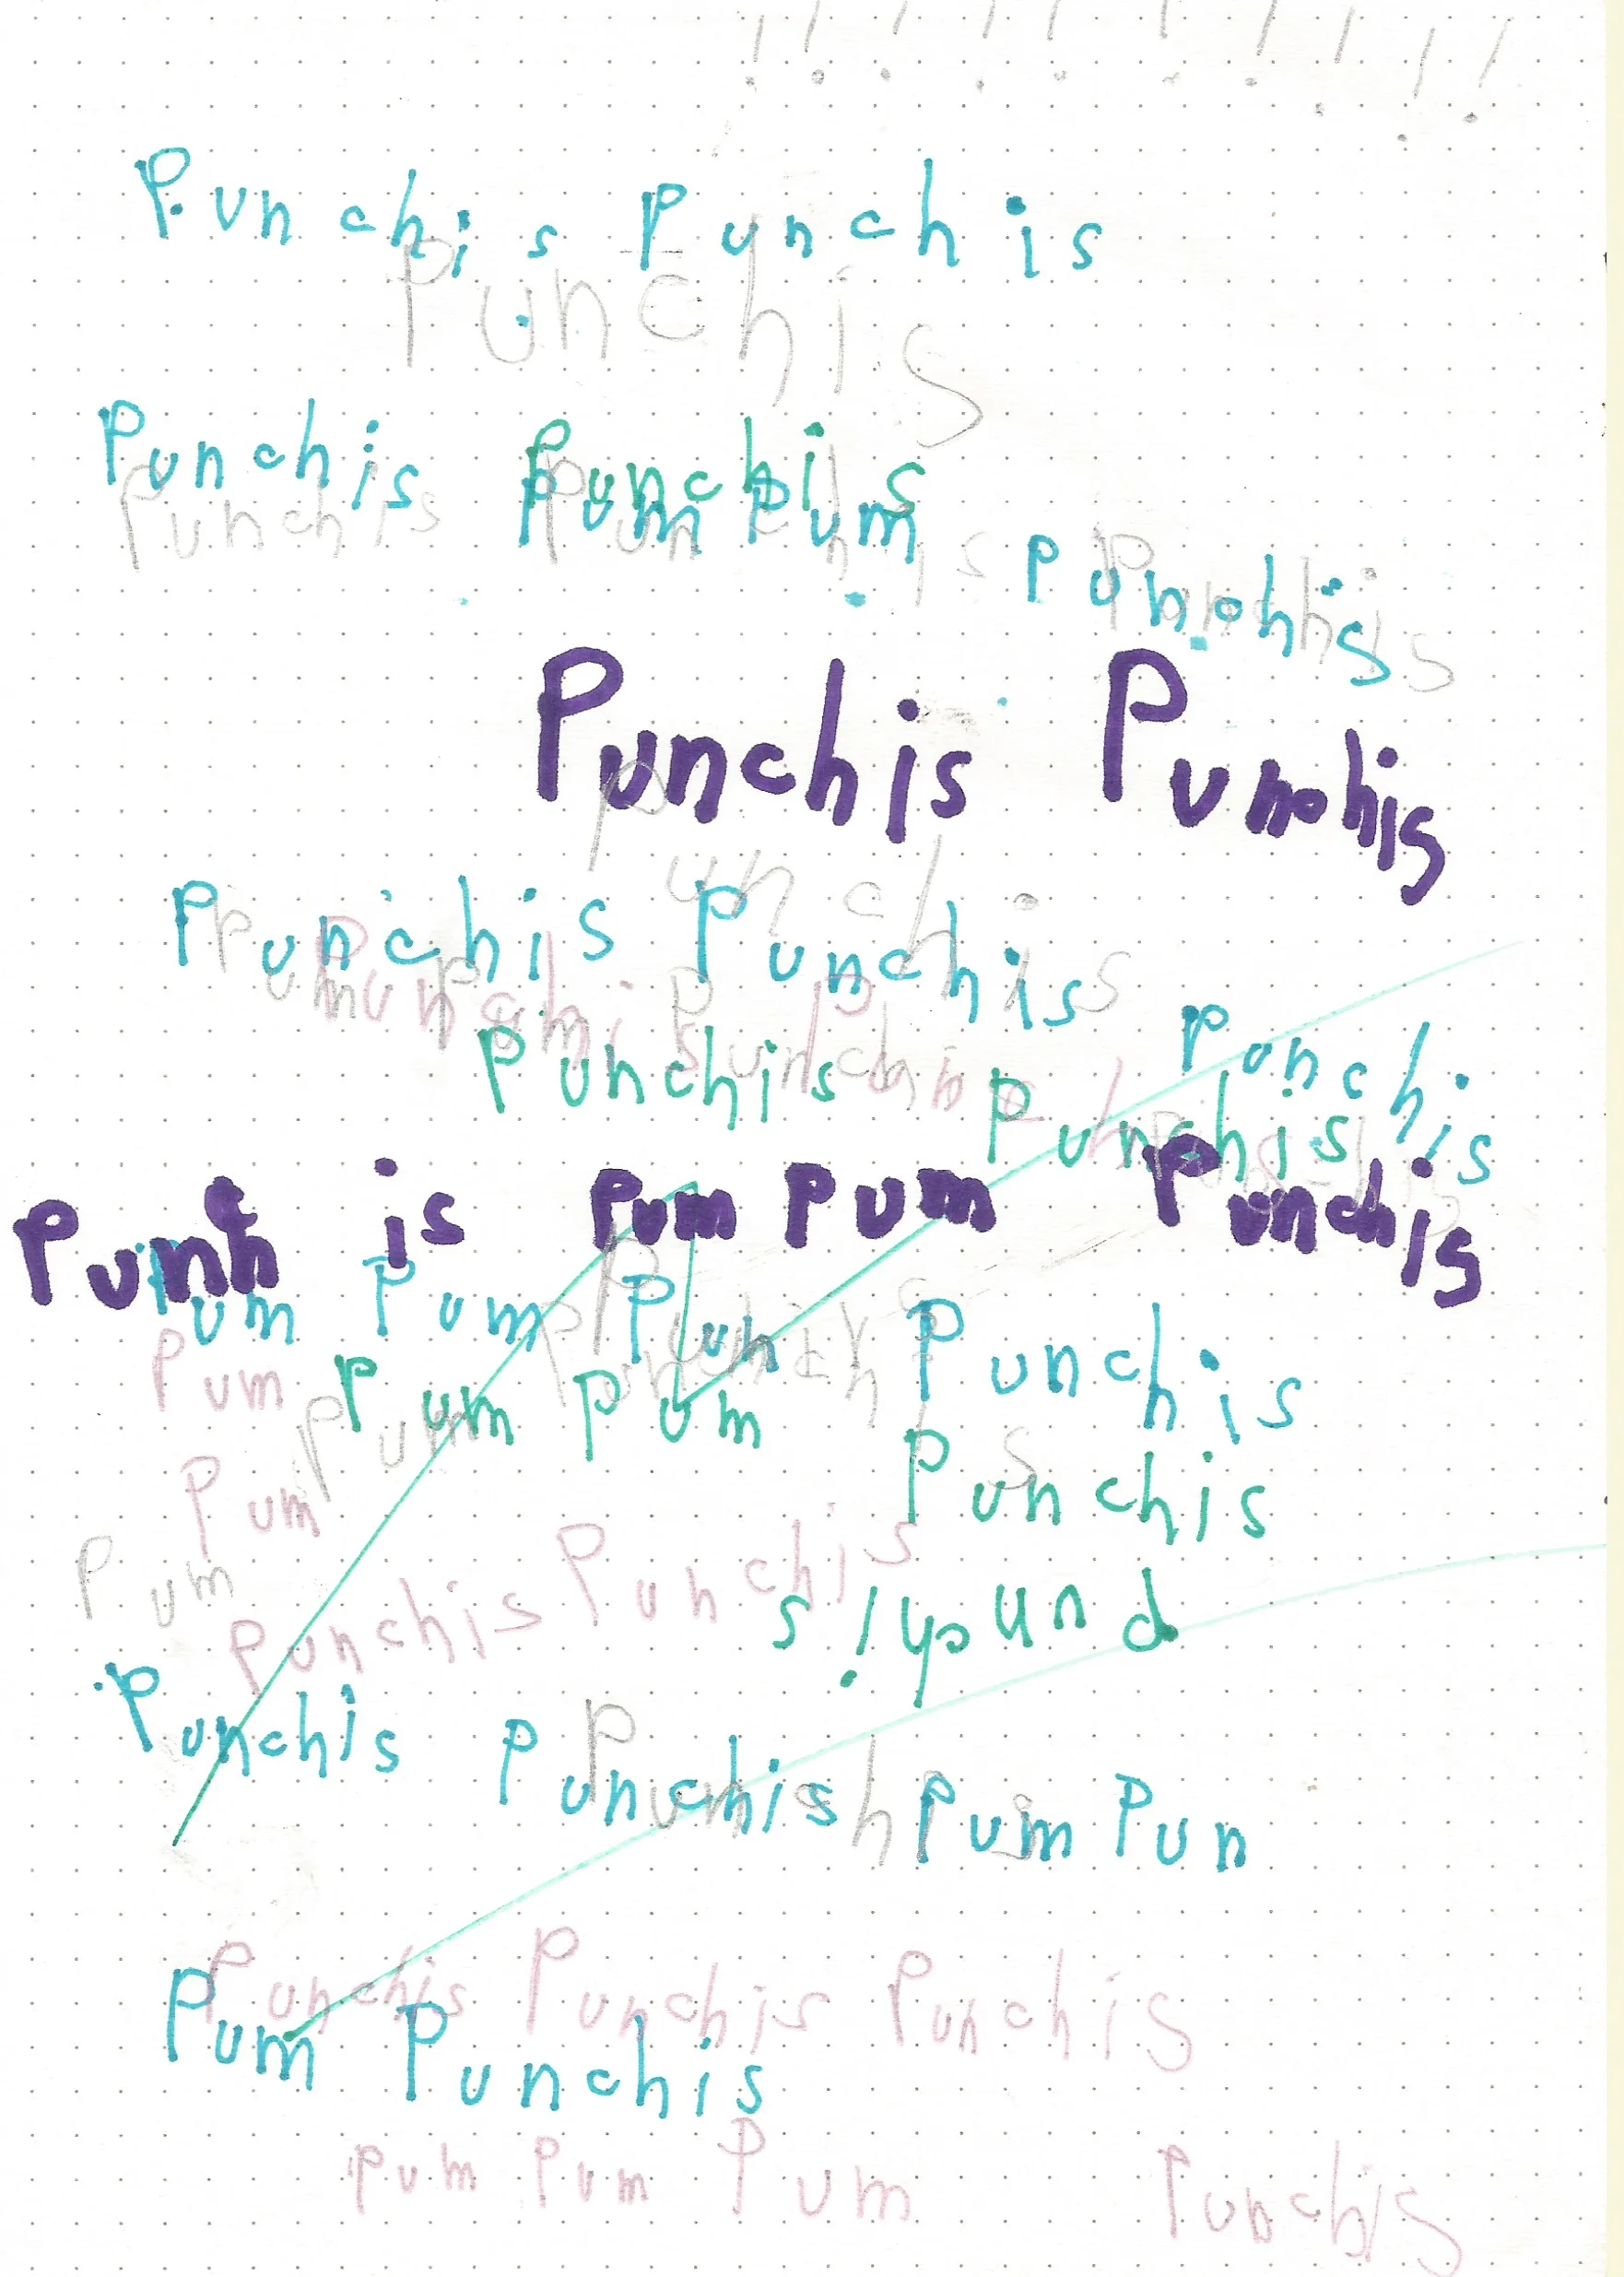 ! ! ! ! ! ! ! ! ! !
Punchis Punchis
Punchis
Punchis Punchis
Punchis Punchis
Pum Pum Punchis Punchis
Punchis Punchis
Punchis
Punchis Punchis
Pum Punchis Punchis
Punchis Punchis Punchis
Punchis is Pum Pum Punchis
Pum Pum Pun Punchis
Pum Pum Pum Punchis
Pum Pum
Punchis
Pum Punchis Punchis
Punchis
Punchis Punchis Pum Pun
Punchis Punchis Punchis
Pum Punchis
Pum Pum Pum Punchis